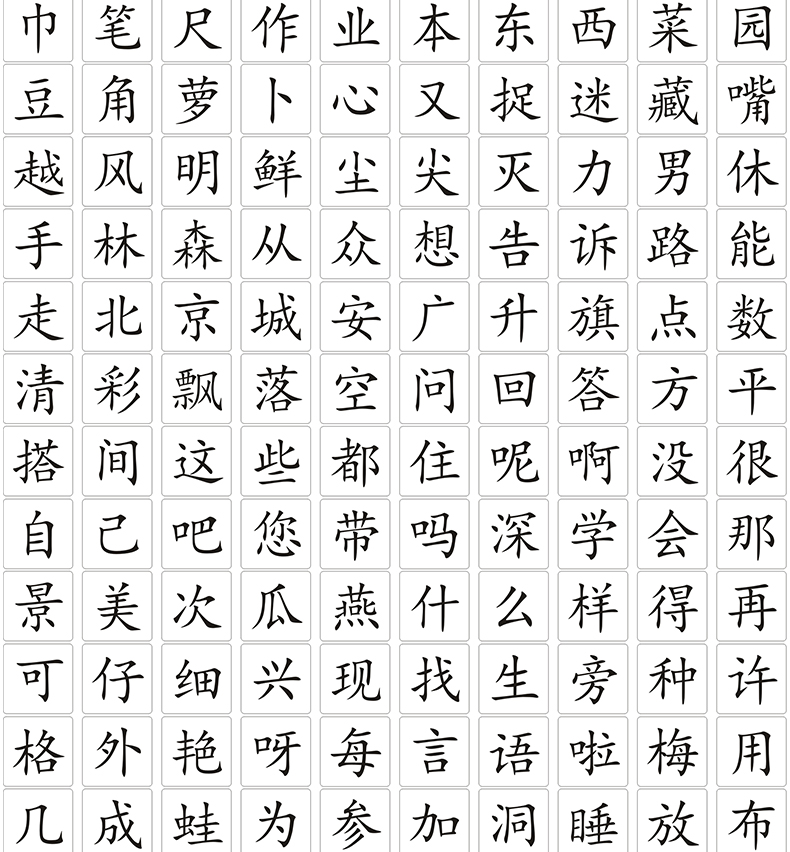 巾笔尺作业本东西菜园
豆角萝卜心又捉迷藏嘴
越风明鲜尘尖灭力男休
手林森从众想告诉路能
走北京城安广升旗点数
清彩飘落空问回答方平
搭间这些都住呢啊没很
自己吧您带吗深学会那
景美次瓜燕什么样得再
可仔细兴现找生旁种许
格外艳呀每言语啦梅用
几成蛙为参加洞睡放布